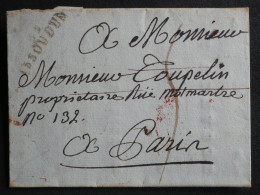 ISSOUDUN
A Monsieur
Monsieur Toupelin
propriétaire Rüe motmartre
No 132.
A Paris